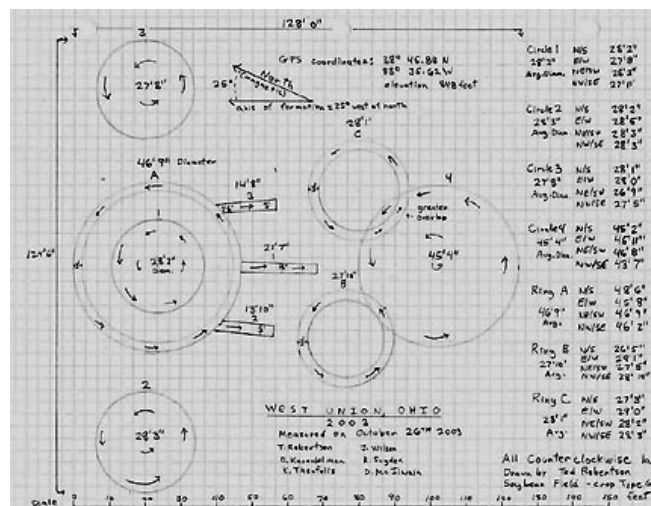 128' 0"
3
27'8"
GPS coordinates: 38° 46.88 N
83° 35.62 W
elevation 848 feet
North
(magnetic)
25°
axis of formation ≈ 25° west of north
28'1"
C
46'9" Diameter
A
14'8"
3
4
greater
overlap
1
28'2"
Diam.
21'7"
1
45'4"
27'10"
B
13'10"
2
2
28'3"
WEST UNION, OHIO
2003
Measured on October 26TH 2003
T. Robertson J. Wilson
R. Sugden
D. McIlwain
Circle 1 N/S 28'2"
28'2" E/W 27'8"
Avg. Diam. NE/SW
NW/SE 27'11"
Circle 2 N/S 28'2"
28'3" E/W 28'5"
Avg. Diam. NE/SW 28'3"
NW/SE 28'3"
Circle 3 N/S 28'1"
27'8" E/W 28'0"
Avg. Diam. NE/SW 26'9"
NW/SE 27'5"
Circle 4 N/S 45'2"
45'4" E/W 46'11"
Avg. Diam. NE/SW 46'8"
NW/SE 43'7"
Ring A N/S 48'6"
E/W 45'8"
46'9" NE/SW 46'9"
Avg. NW/SE 46'2"
Ring B N/S 26'5"
E/W 28'1"
27'10" NE/SW
Avg. NW/SE 28'10"
Ring C N/S 27'3"
E/W 29'0"
28'1" NE/SW 28'2"
Avg NW/SE 28'3"
All Counterclockwise
Drawn by Ted Robertson
Soybean Field - crop Type
Scale 0 10 20 30 40 50 60 70 80 90 100 110 120 130 140 150 feet